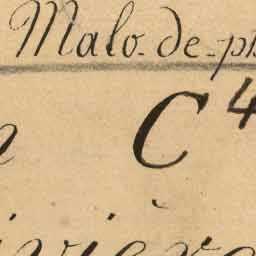 Malo-de-ph
C 4
ivière